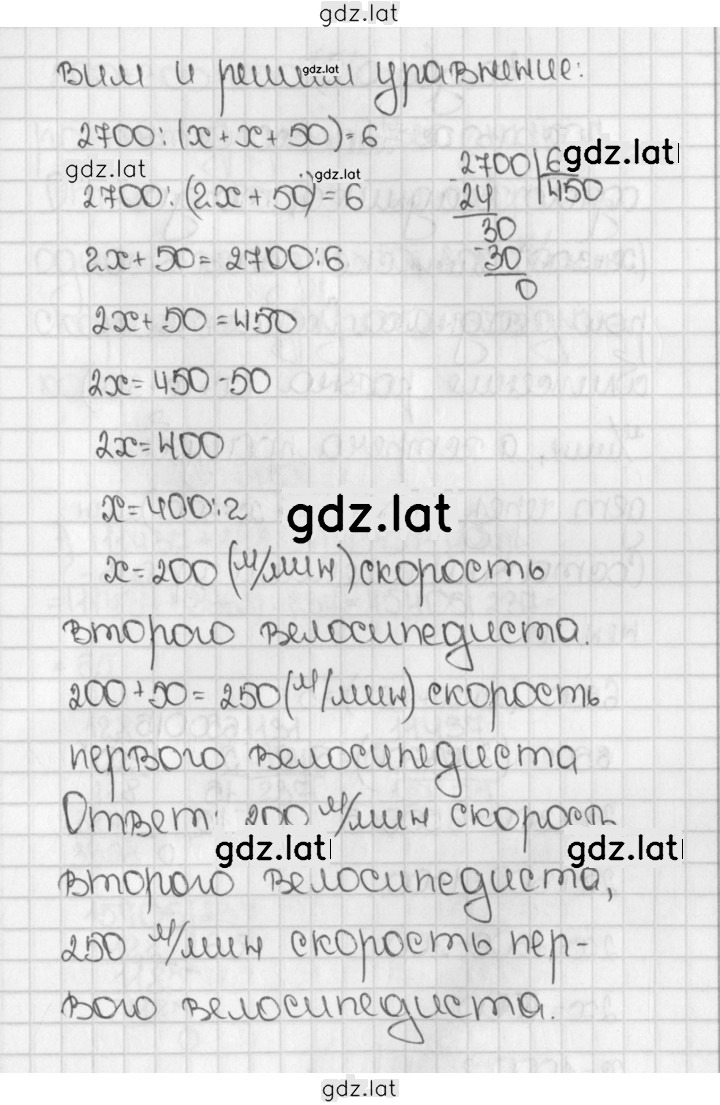 gdz.lat
вим и решим уравнение:
gdz.lat
2700:(x+x+50)=6
gdz.lat
2700:(2x+50)=6
gdz.lat
2x+50=2700:6
2x+50=450
2x=450-50
2x=400
x=400:2
gdz.lat
x=200 (м/мин) скорость
второго велосипедиста.
200+50=250 (м/мин) скорость
первого велосипедиста
Ответ: 200 м/мин скорость
gdz.lat
gdz.lat
второго велосипедиста,
250 м/мин скорость пер-
вого велосипедиста.
-2700|6
gdz.lat
24 |450
30
-30
0
gdz.lat